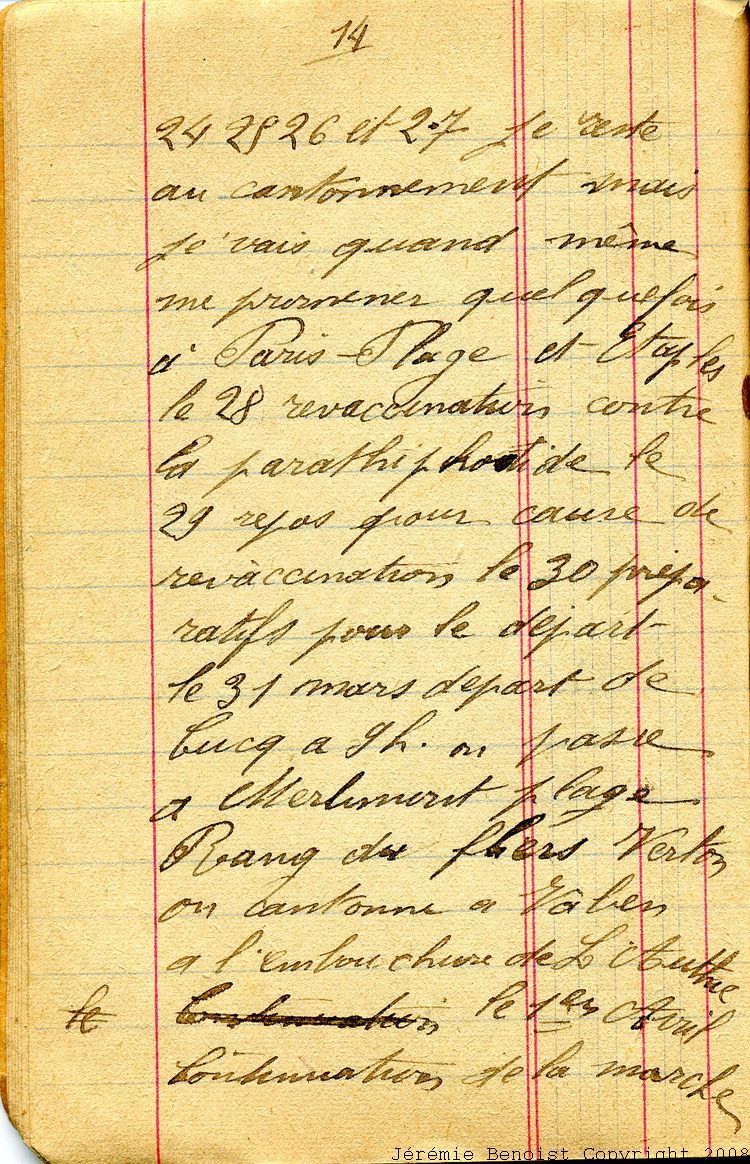 14
24 25 26 et 27 je reste
au cantonnement mais
je vais quand même
me promener quelquefois
à Paris-Plage et Etaples
le 28 revaccination contre
la parathiphoïtide le
29 repos pour cause de
revaccination le 30 prépa-
ratifs pour le départ
le 31 mars depart de
Cucq a 9h. on passe
a Merlimont plage
Rang du fliers Verton
on cantonne a Waben
a l'embouchure de L'Authie
le Continuation le 1er Avril
Continuation de la marche
Jérémie Benoist Copyright 2008